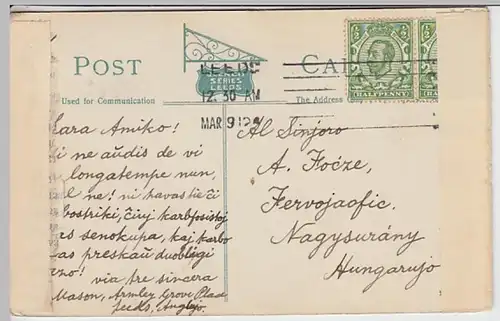 POST
CA
Used for Communication
The Address
SERIES
LEEDS
LEEDS
12.30 AM
MAR 9 12
HALFPENNY
Kara Amiko!
i ne aŭdis de vi
longatempe nun,
ne! ni havas tie ĉi
bostriki, ĉiuj karbfosistoj
as senokupa, kaj karbo
as preskaŭ duobligi
ezo! via tre sincera
Mason, Armley Grove Place
Leeds, Anglujo.
Al Sinjoro
A.
Fervojaofic.
Nagysurány
Hungarujo